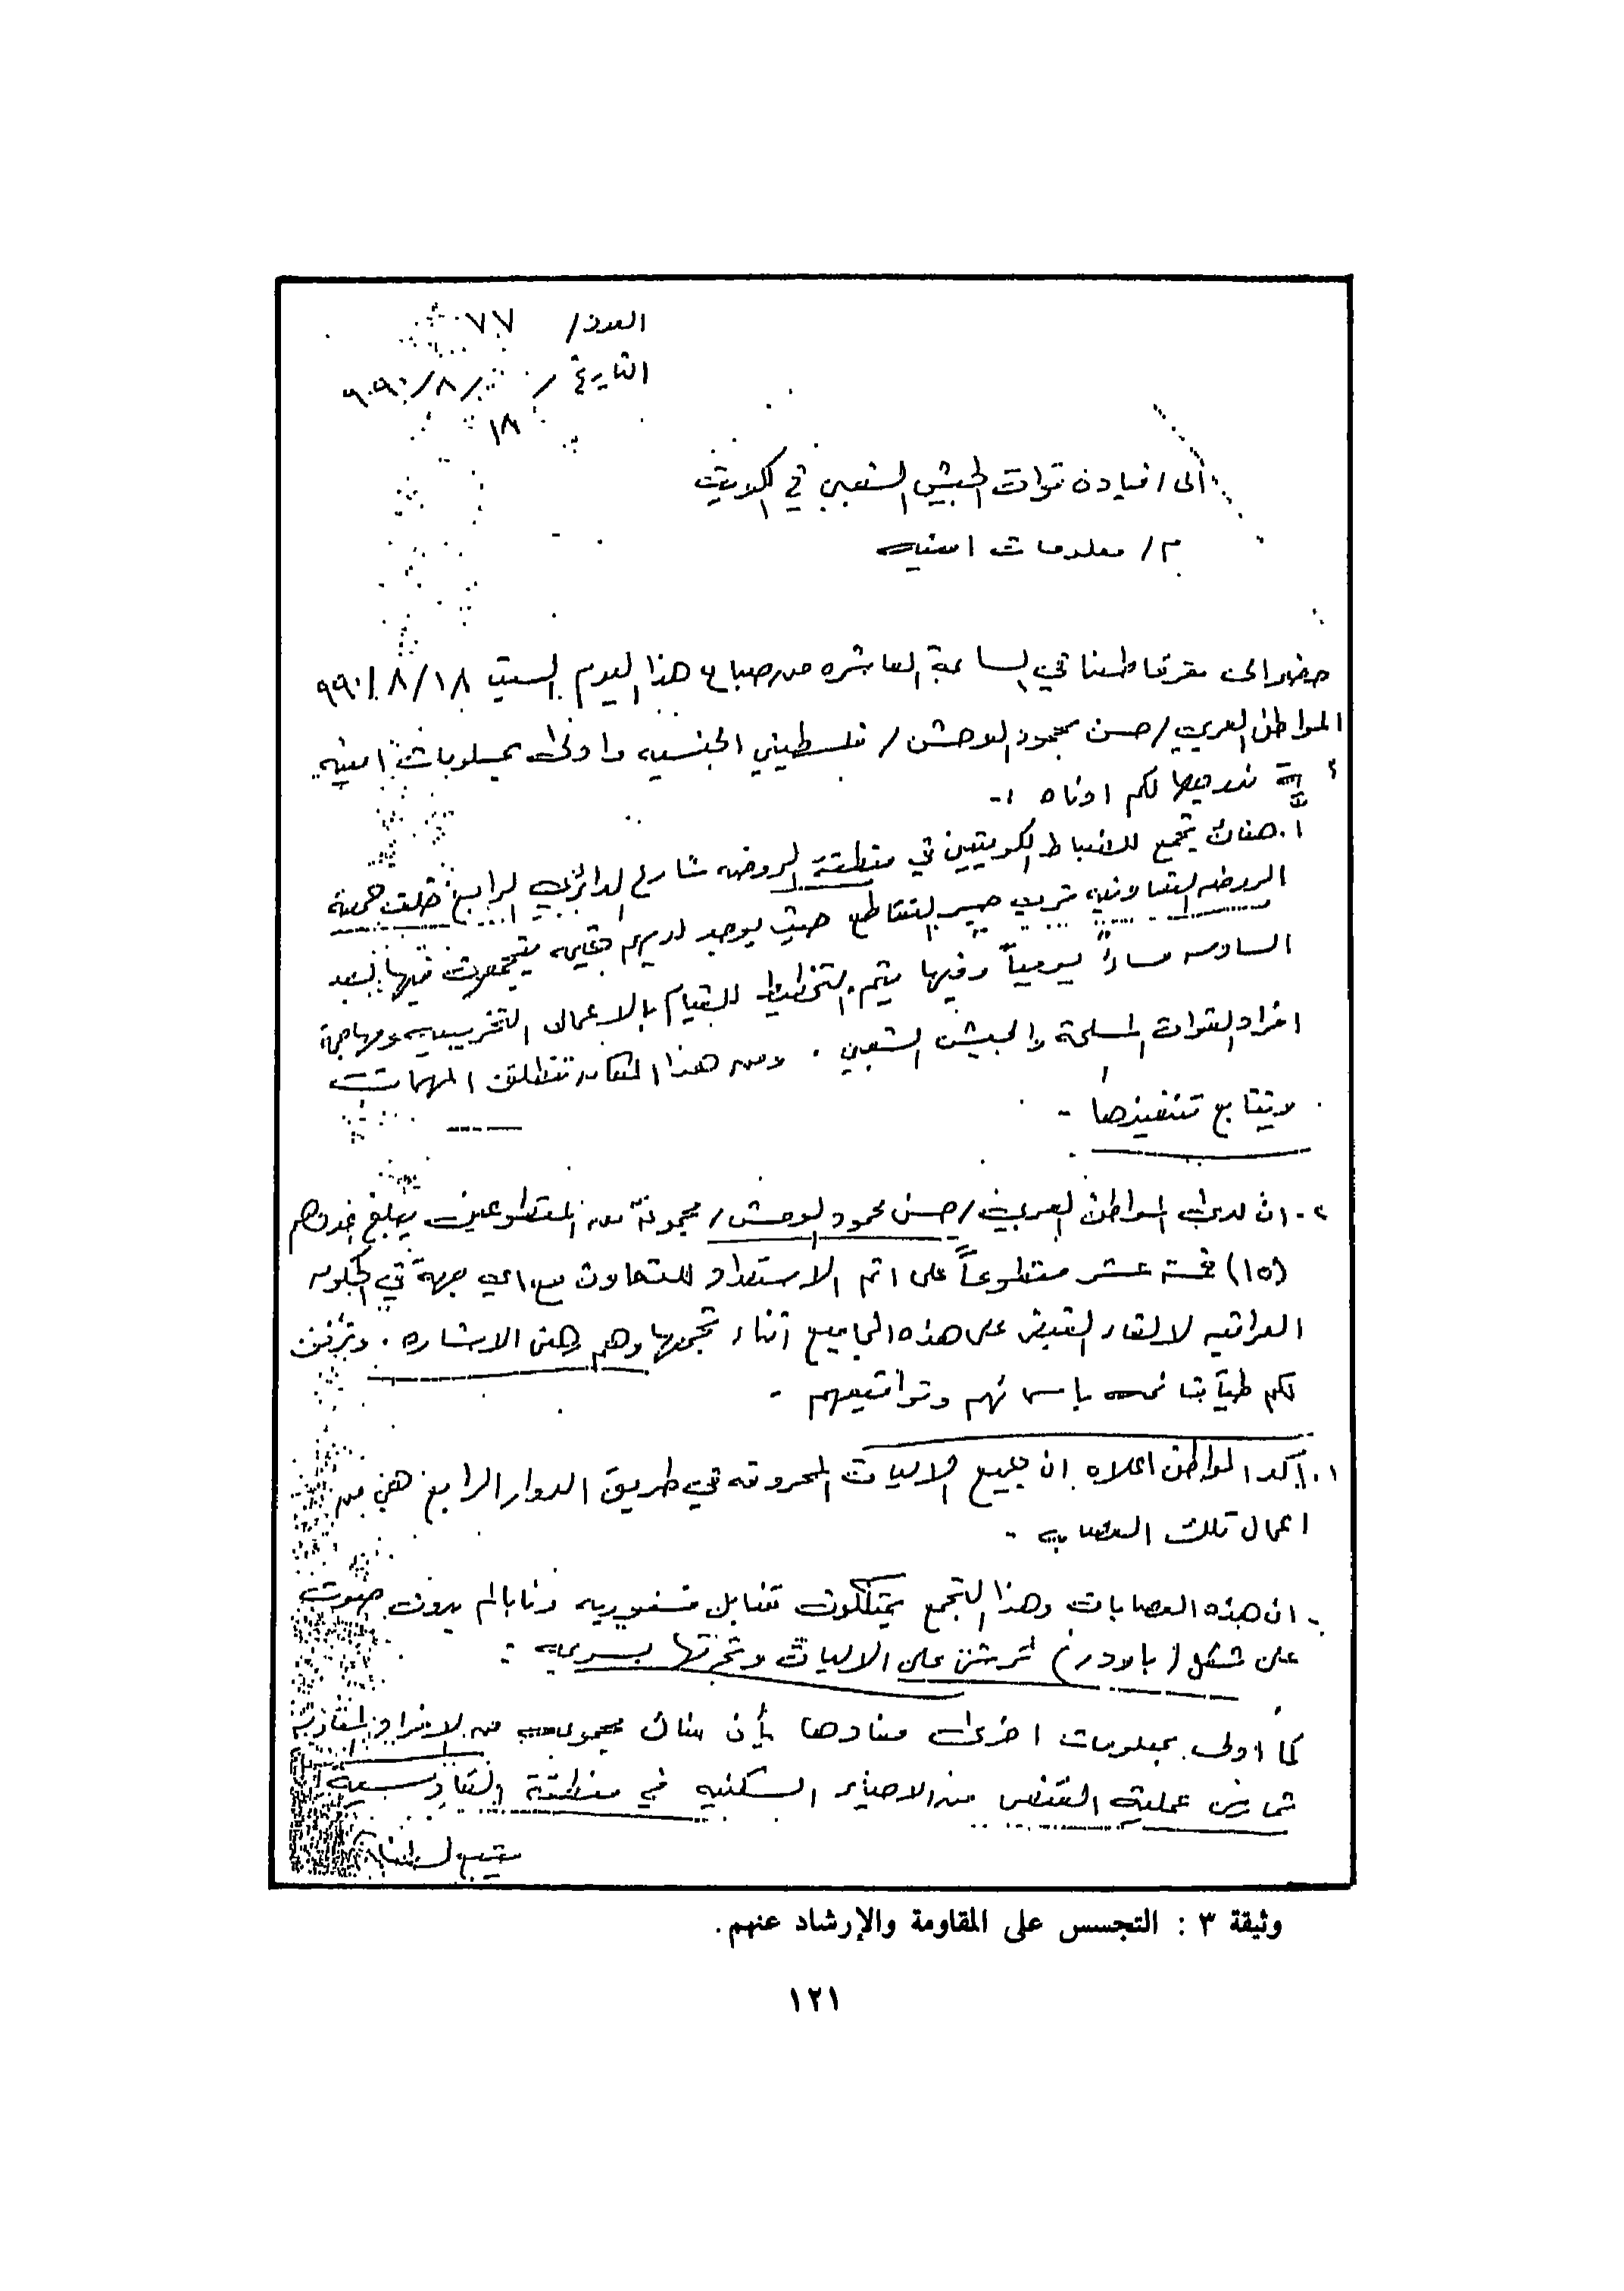 العدد / ٧٧
التاريخ / / ٨ / ٩٩٠
١٨
الى / قيادة قوات الجيش الشعبي في الكويت
م / معلومات امنيه
حضر الى مقر قاطعنا في الساعة العاشره من صباح هذا اليوم السبت ١٨ / ٨ / ٩٩٠
المواطن العربي / حسن محمود الوحش / فلسطيني الجنسيه وادلى بمعلومات امنيه
ندرجها لكم ادناه :-
١. هناك تجمع للضباط الكويتيين في منطقة الروضه شارع الدائري الرابع خلف جمعية
الروضه التعاونيه قريب جسر التقاطع حيث يوجد لديهم يتجمعون فيها بعد
السادسه مساءً يومياً وفيها يتم التخطيط للقيام بالاعمال التخريبيه ومهاجمة
افراد القوات المسلحة والجيش الشعبي . ومن هذا المكان تنطلق المهمات
ويتابع تنفيذها -
٢- ان لدى المواطن العربي / حسن محمود الوحش / مجموعة من المتطوعين يبلغ عددهم
(١٥) خمسة عشر متطوعاً على اتم الاستعداد للتعاون مع اي جهة في الحكومه
العراقيه لالقاء القبض على هذه المجاميع اثناء تجمعها وهم رهن الاشاره . ونرفق
لكم طياً قائمه باسمائهم وتواقيعهم -
١. اكد المواطن اعلاه ان جميع الاليات المحروقه في طريق الدوار الرابع هي من
اعمال تلك العصابه -
- ان هذه العصابات وهذا التجمع يمتلكون قنابل فسفوريه ونابالم بدون صوت
على شكل (باودر) ترش على الاليات وتحرقها بسريه :
كما ادلى بمعلومات اخرى مفادها بأن هناك مجموعه من الافراد
تمارس عملية القنص من الاحياء السكنيه في منطقة القادسيه
يتبع لطفاً
وثيقة ٣ : التجسس على المقاومة والإرشاد عنهم.
١٢١